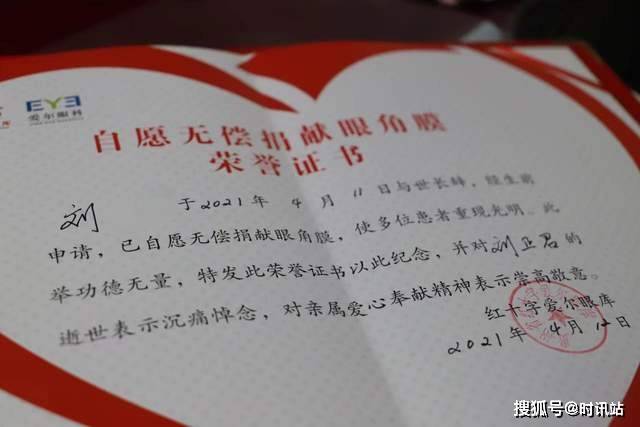 EYE
爱尔眼科
自愿无偿捐献眼角膜
荣誉证书
刘 于2021年4月11日与世长辞，经生前
申请，已自愿无偿捐献眼角膜，使多位患者重现光明。此
举功德无量，特发此荣誉证书以此纪念，并对刘正君的
逝世表示沉痛悼念，对亲属爱心奉献精神表示崇高敬意。
红十字爱尔眼库
2021年4月12日
搜狐号@时讯站